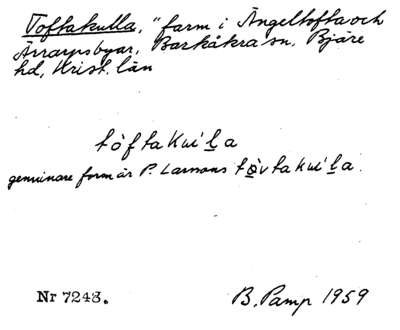 Toftakulla, "farm i Ängeltofta och
Ärrarpsbyar, Barkåkra sn. Bjäre
hd, Krist. län
tòftakwíḻa
genuinare form är P. Larssons tò̱vtakwíḻa.
Nr 7248. B. Pamp 1959